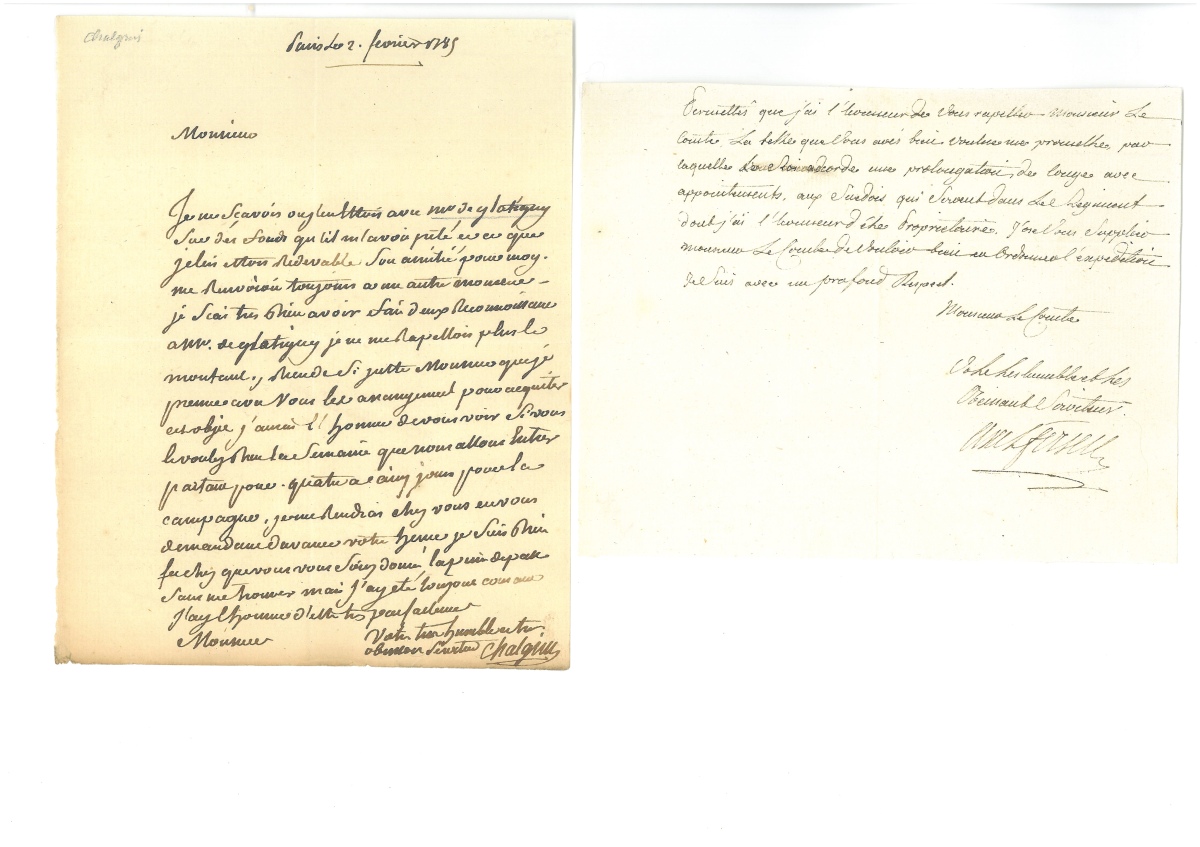 Chalgrin
Paris Le 2. fevrier 1785
Monsieur
Je ne scavois en avec mr. de glatigny
Sur des fonds qu'il m'avoit prété en ce que
je lui Etois Redevable Son amitié pour moy.
me Renvoioit toujours a un autre moment
je Scais tres Bien avoir fait deux Reconnoissance
a Mr. de glatigny je ne me Rapellois plus le
montant, Rien de Si juste Monsieur que je
prenne avec Vous les arrangement pour acquiter
cet objet j'aurai l'honneur de vous voir Si vous
le voulez Bien La Semaine que nous allons Entrer
partant pour quatre a cinq jours pour la
campagne, je me Rendrai chez vous en vous
demandant d'avance votre heure je Suis Bien
faché que vous vous Soiez donné la peine de passer
Sans me trouver mais j'ay été toujours
J'ay l'honneur d'etre tres parfaitement
Monsieur Votre tres humble et tres
obeissant Serviteur Chalgrin
Permettés que j'ai l'honneur de Vous rapeller Monsieur Le
Comte, La lettre que Vous avés bien voulue me promettre, par
laquelle Le Roi accorde une prolongation de Congé avec
appointements, aux Suedois qui Servent dans Le Regiment
dont j'ai l'honneur d'être Proprietaire. J'ose Vous Supplier
monsieur Le Comte de Vouloir bien en Ordonner l'expedition
Je Suis avec un profond Respect.
Monsieur Le Comte
Votre tres humble et tres
Obeissant Serviteur.
Axel Fersen